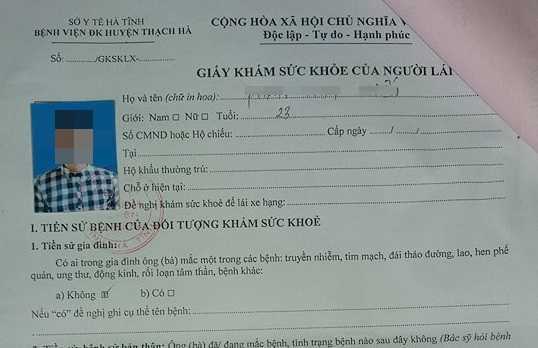 SỞ Y TẾ HÀ TĨNH
BỆNH VIỆN ĐK HUYỆN THẠCH HÀ
CỘNG HÒA XÃ HỘI CHỦ NGHĨA
Độc lập - Tự do - Hạnh phúc
Số: ............/GKSKLX-............
GIẤY KHÁM SỨC KHỎE CỦA NGƯỜI LÁI
Họ và tên (chữ in hoa):
Giới: Nam □ Nữ □ Tuổi: 23
Số CMND hoặc Hộ chiếu: Cấp ngày ....../....../......
Tại
Hộ khẩu thường trú:
Chỗ ở hiện tại:
Đề nghị khám sức khỏe để lái xe hạng:
I. TIỀN SỬ BỆNH CỦA ĐỐI TƯỢNG KHÁM SỨC KHOẺ
1. Tiền sử gia đình:
Có ai trong gia đình ông (bà) mắc một trong các bệnh: truyền nhiễm, tim mạch, đái tháo đường, lao, hen phế
quản, ung thư, động kinh, rối loạn tâm thần, bệnh khác:
a) Không ☑ b) Có □
Nếu “có” đề nghị ghi cụ thể tên bệnh:
bản thân: Ông (bà) đã/ đang mắc bệnh, tình trạng bệnh nào sau đây không (Bác sỹ hỏi bệnh